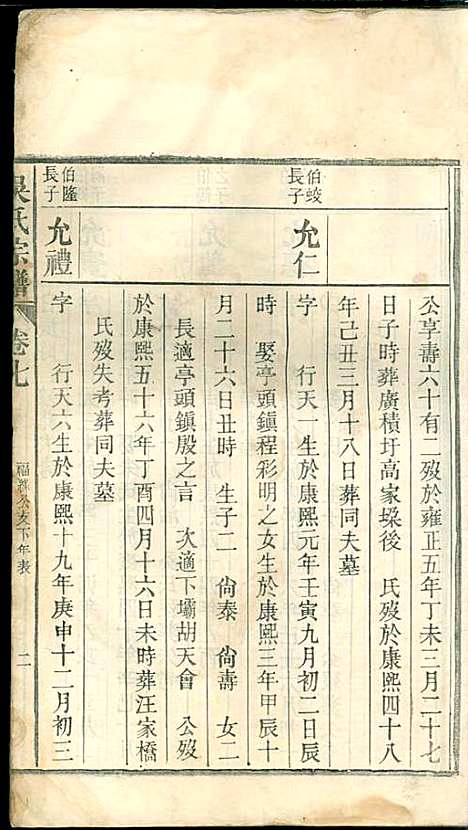 公享壽六十有二歿於雍正五年丁未三月二十七
日子時葬廣積圩高家垛後　氏歿於康熙四十八
年己丑三月十八日葬同夫墓
伯蛟
長子
允仁
字　行天一生於康熙元年壬寅九月初二日辰
時　娶亭頭鎮程彩明之女生於康熙三年甲辰十
月二十六日丑時　生子二　尙泰　尙壽　女二
長適亭頭鎮殷之言　次適下壩胡天會　公歿
於康熙五十六年丁酉四月十六日未時葬汪家橋
氏歿失考葬同夫墓
伯隆
長子
允禮
字　行天六生於康熙十九年庚申十二月初三
吳氏宗譜
卷七
公支下年表
二